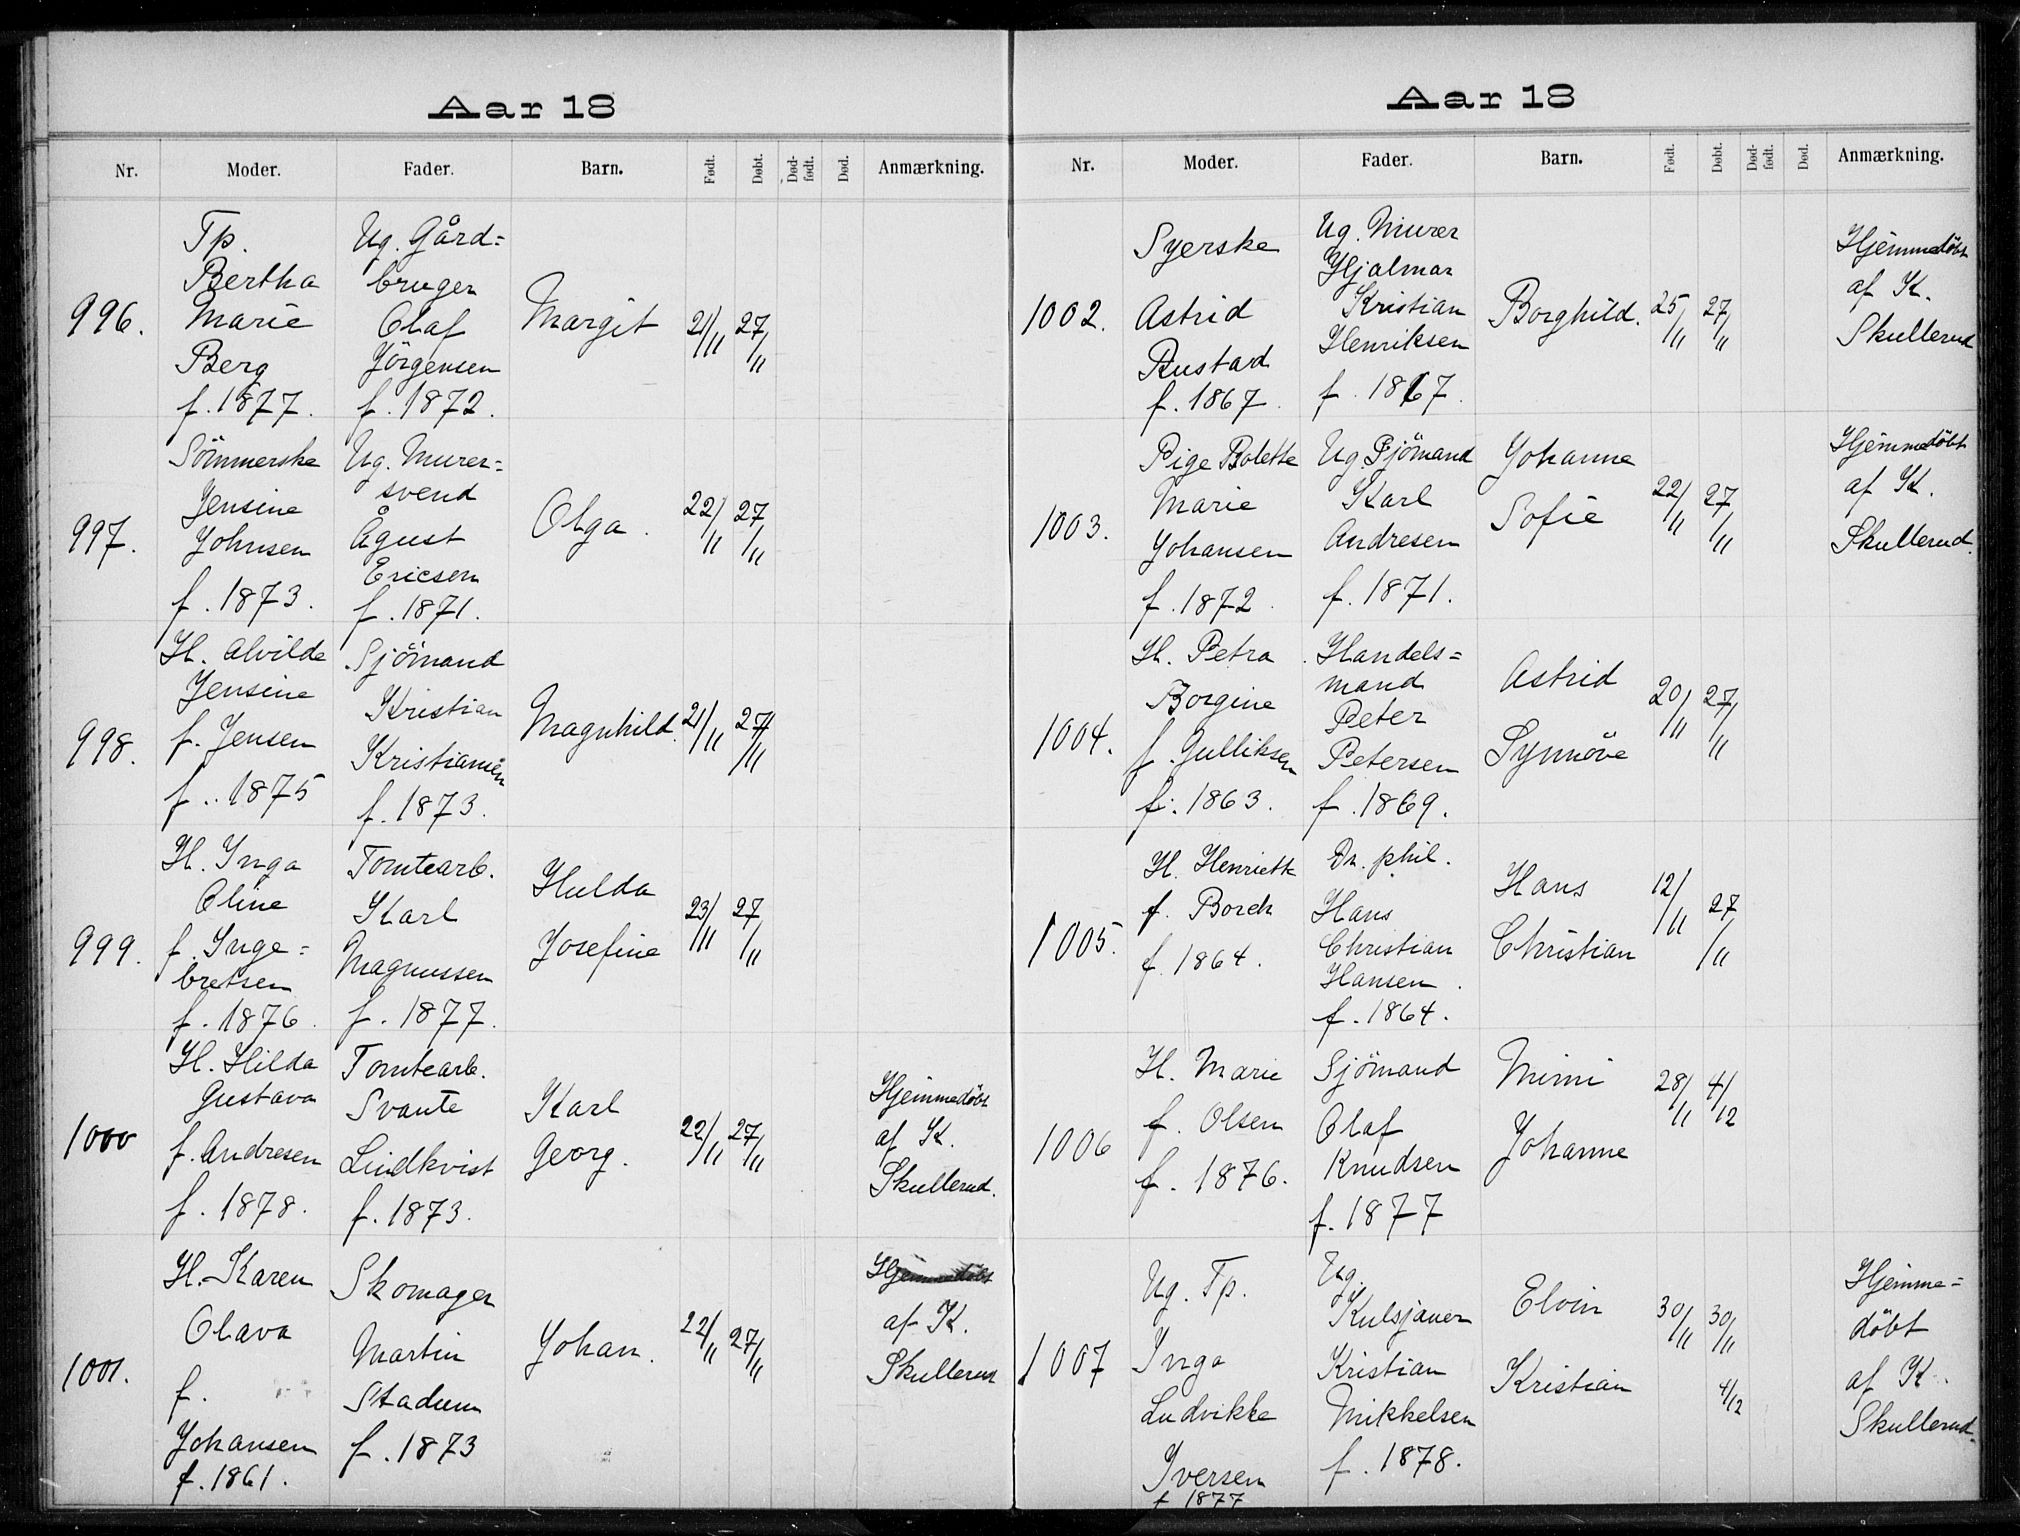 Aar 18
Nr. Moder. Fader. Barn. Født. Døbt. Død-født. Død. Anmærkning.
996.
Tp.
Bertha
Marie
Berg
f. 1877.
Ug. Gård=
bruger
Olaf
Jörgensen
f. 1872.
Margit
21/11
27/11
997.
Sömmerske
Jensine
Johnsen
f. 1873.
Ug. Murer=
svend
Ågust
Ericsen
f. 1871.
Olga.
22/11
27/11
998.
H. Alvilde
Jensine
f. Jensen
f. 1875
Sjömand
Kristian
Kristiansen
f. 1873.
Magnhild.
21/11
27/11
999.
H. Inga
Oline
f. Inge=
bretsen
f. 1876.
Tomtearb.
Karl
Magnussen
f. 1877.
Hulda
Josefine
23/11
27/11
1000
H. Hilda
Gustava
f. Andresen
f. 1878.
Tomtearb.
Svante
Lindkvist
f. 1873.
Karl
Georg.
22/11
27/11
Hjemmedöbt
af K.
Skullerud.
1001.
H. Karen
Olava
f.
Johansen
f. 1861.
Skomager
Martin
Stadum
f. 1873
Johan.
22/11
27/11
Hjemmedöbt
af K.
Skullerud
Aar 18
Nr. Moder. Fader. Barn. Født. Døbt. Død-født. Død. Anmærkning.
1002.
Syerske
Astrid
Rustad
f. 1867.
Ug. Murer
Hjalmar
Kristian
Henriksen
f. 1867.
Borghild.
25/11
27/11
Hjemmedöbt
af K.
Skullerud
1003.
Pige Bolette
Marie
Johansen
f. 1872.
Ug. Sjömand
Karl
Andresen
f. 1871.
Johanne
Sofie
22/11
27/11
Hjemmedöbt
af K.
Skullerud.
1004.
H. Petra
Borgine
f. Gulliksen
f. 1863.
Handels=
mand
Peter
Petersen
f. 1869.
Astrid
Synnöve
20/11
27/11
1005.
H. Henriette
f. Borch
f. 1864.
Dr. phil.
Hans
Christian
Hansen.
f. 1864.
Hans
Christian
12/11
27/11
1006
H. Marie
f. Olsen
f. 1876.
Sjömand
Olaf
Knudsen
f. 1877
Mimi
Johanne
28/11
4/12
1007
Ug. Tp.
Inga
Ludvikke
Iversen
f. 1877
Ug.
Kulsjauer
Kristian
Mikkelsen
f. 1878.
Elvin
Kristian
30/11
30/11
4/12
Hjemme=
döbt
af K.
Skullerud.